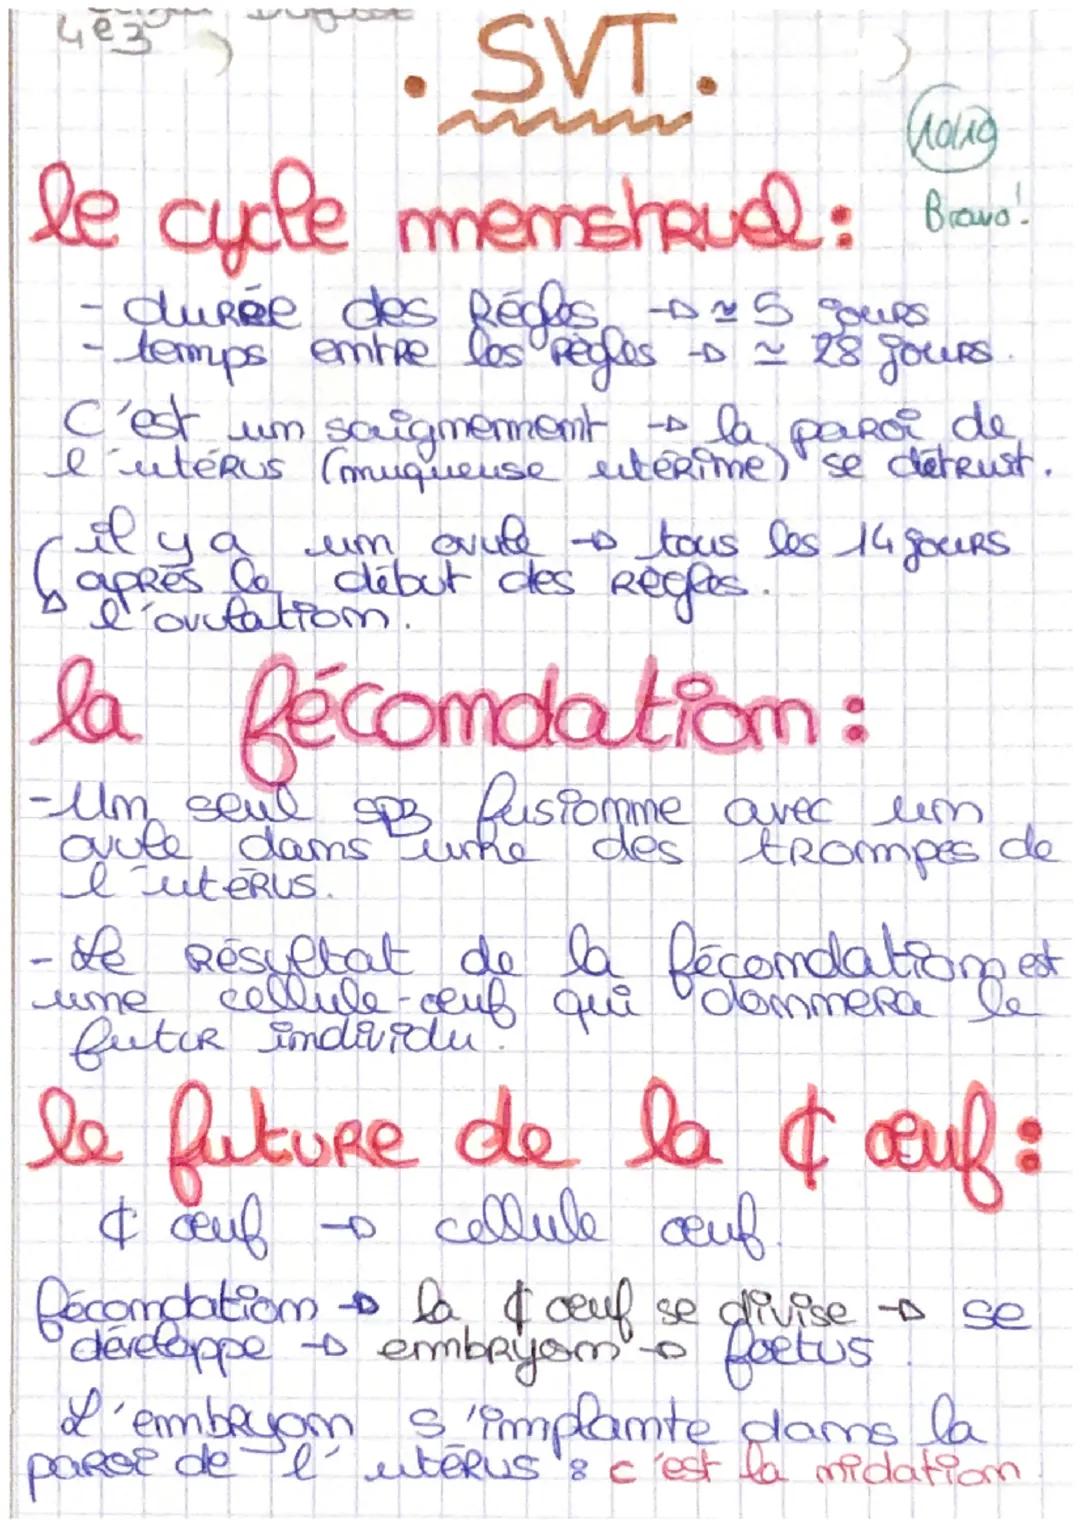 4e3
. SVT .
10/10
Bravo!
le cycle menstruel :
- durée des Règles → ≃ 5 jours
- temps entre les règles → ≃ 28 jours.
C'est un saignement → la paroi de
l'utérus (muqueuse utérine) se détruit.
il y a un ovule → tous les 14 jours
après le début des Règles.
→ l'ovulation.
la fécondation :
- Un seul spz fusionne avec un
ovule dans une des trompes de
l'utérus.
- Le Résultat de la fécondation est
une cellule-œuf qui donnera le
futur individu.
le future de la ₵ œuf :
₵ œuf → cellule œuf.
fécondation → la ₵ œuf se divise → se
développe → embryon → foetus.
L'embryon s'implante dans la
paroi de l'utérus : c'est la nidation